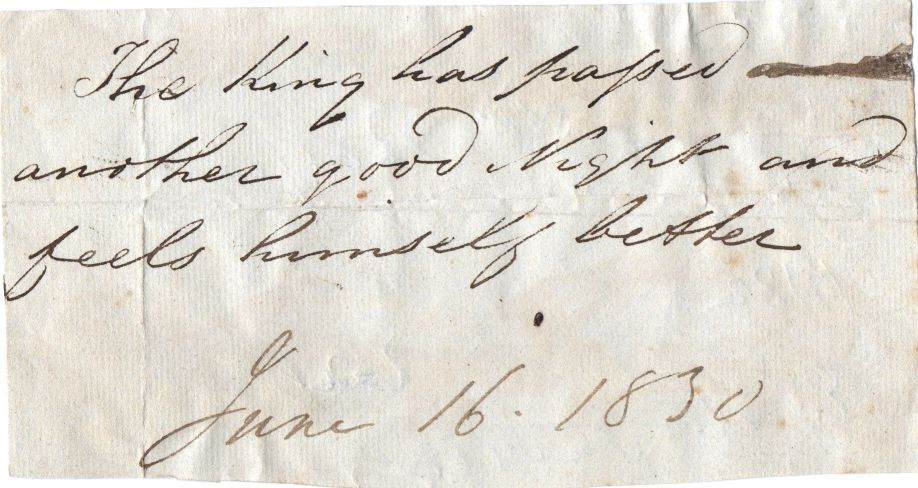 The King has paſsed
another good Night and
feels himself better
June 16. 1830